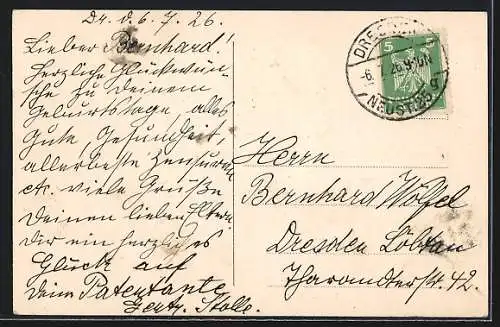 Dr. d. 6. 7. 26.
Lieber Bernhard!
Herzliche Glückwün-
sche zu Deinem
Geburtstage, alles
Gute, Gesundheit,
allerbeste Zensuren
etc. viele Grüße
Deinen lieben Eltern.
Dir ein herzliches
Glück auf
Deine Patentante
Gertr. Stolle.
DRESDEN
5 5
-6. 7. 26. 9-10N
NEUST. 25 g
Herrn
Bernhard Wölfel
Dresden Löbtau
Tharandterstr. 42.